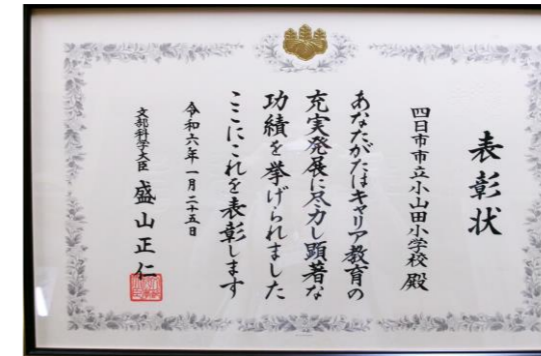 表彰状
四日市市立小山田小学校 殿
あなたがたはキャリア教育の
充実発展に尽力し顕著な
功績を挙げられました
ここにこれを表彰します
令和六年一月二十五日
文部科学大臣 盛山正仁